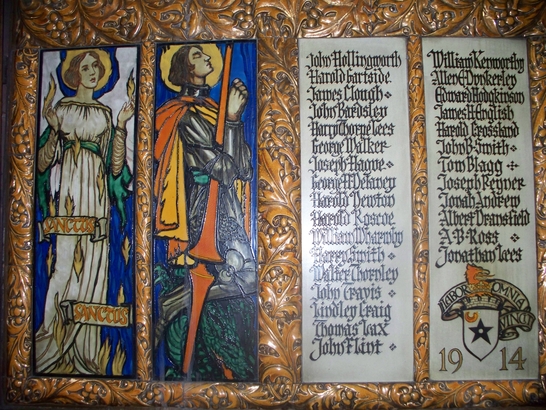 SANCTUS
SANCTUS
John Hollingworth
Harold Gartside
James Clough
John Bardsley
Harry Thorne Lees
George Walker
Joseph Hague
George H Delaney
Harold Newton
Harold Roscoe
William Wharmby
Harry Smith
Walter Thornley
John Grayis
Lindley Craig
Thomas Lax
John Flint
William Kenworthy
Allen Dunkerley
Edward Hodgkinson
James H English
Harold Crossland
John B Smith
Tom Blagg
Joseph Reyner
Jonah Andrew
Albert Dransfield
A B Ross
Jonathan Lees
LABOR OMNIA VINCIT
1914